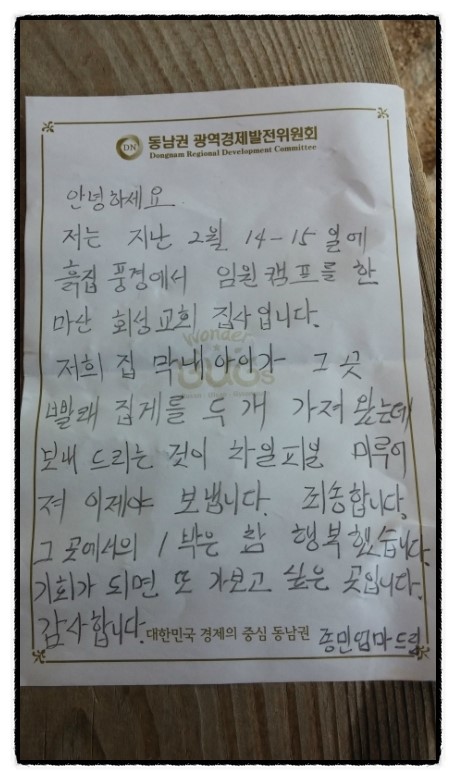 DN 동남권 광역경제발전위원회
Dongnam Regional Development Committee
안녕하세요
저는 지난 2월 14-15일에
흙집 풍경에서 임원캠프를 한
마산 회성교회 집사입니다.
Wonder
저희 집 막내아이가 그 곳
빨래 집게를 두 개 가져왔는데
보내 드리는 것이 차일피일 미루어
져 이제야 보냅니다. 죄송합니다.
그 곳에서의 1박은 참 행복했습니다.
기회가 되면 또 가보고 싶은 곳입니다.
감사합니다.
대한민국 경제의 중심 동남권 종민엄마드림